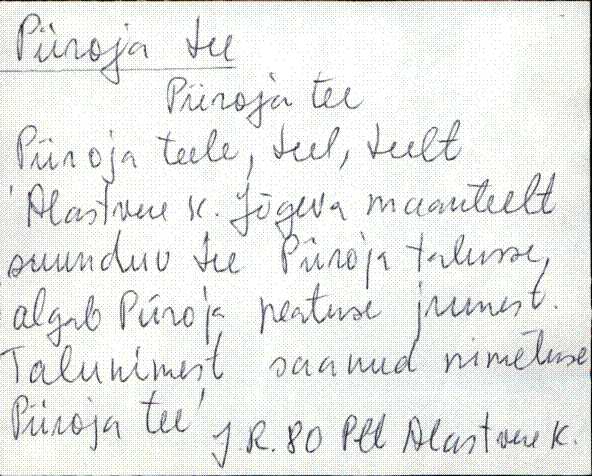 Piiroja tee
Piiroja tee
Piiroja teele, teel, teelt
'Alastvere k. Jõgeva maanteelt
suunduv tee Piiroja talusse,
algab Piiroja peatuse juurest.
Talunimest saanud nimetuse
Piiroja tee'
J.R. 80 Plt Alastvere k.